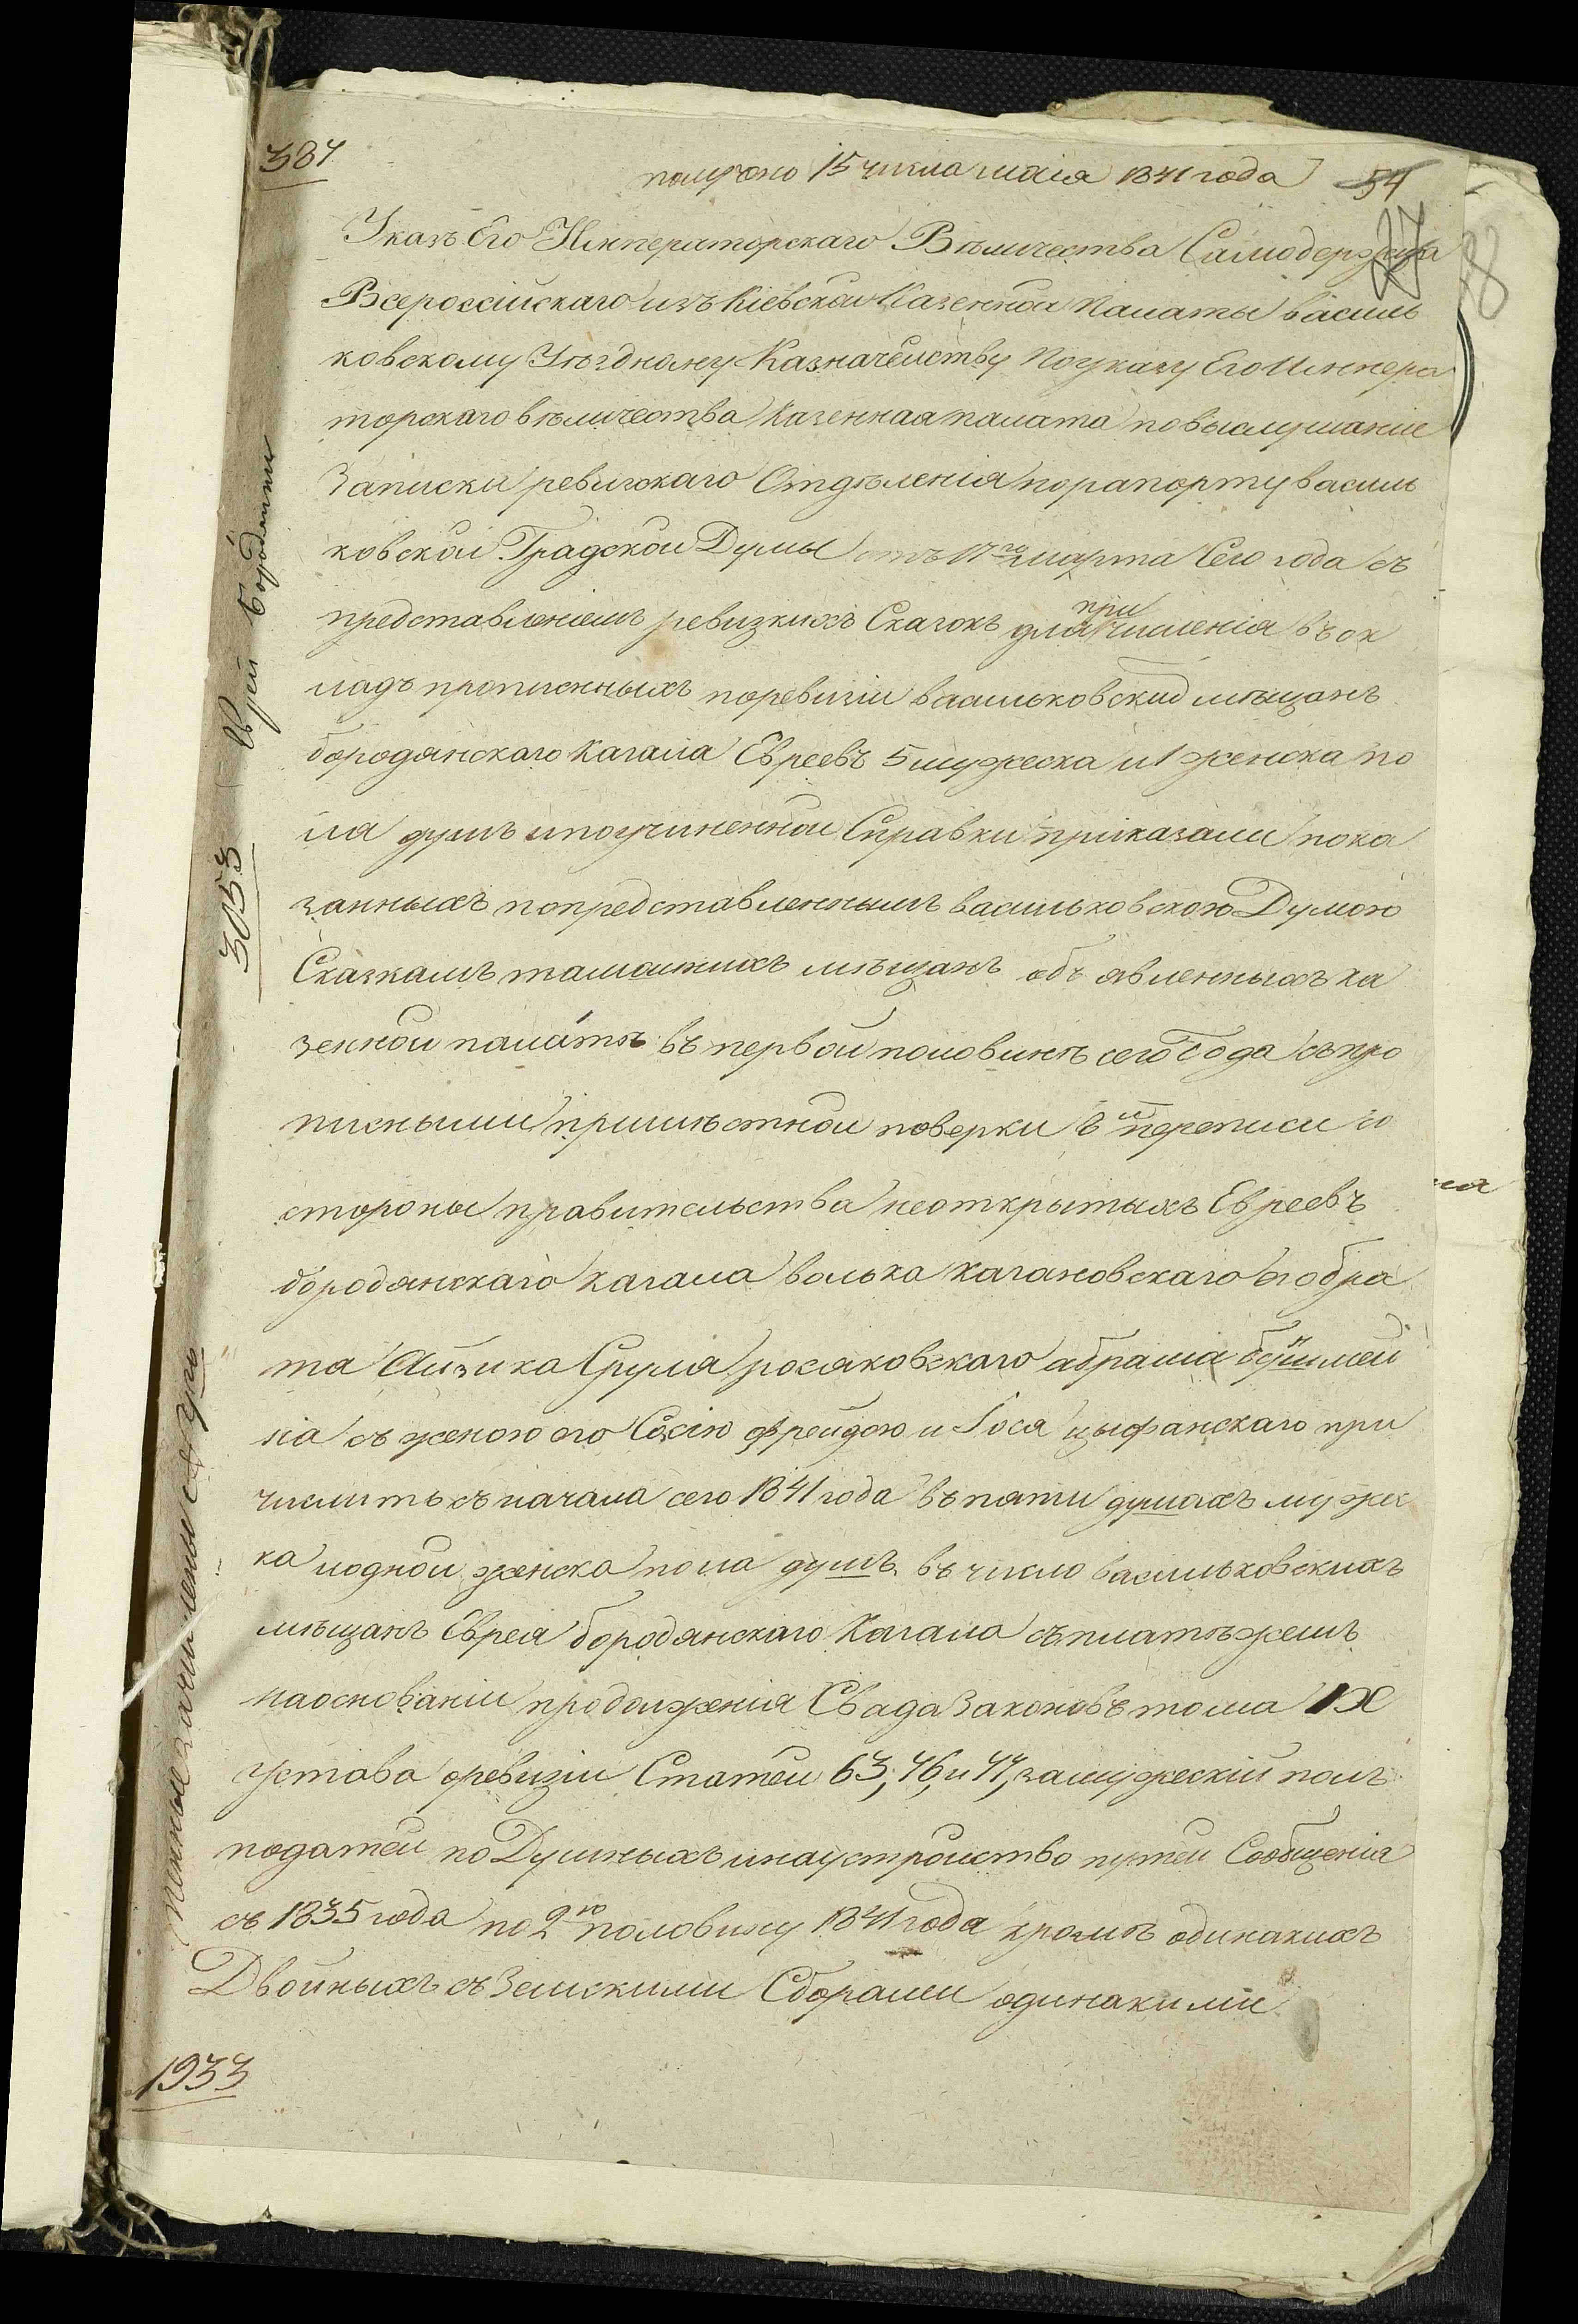 387
получено 15 числа маія 1841 года
54
27
98
Указъ Его Императорскаго Величества Самодержца
Всероссійскаго изъ Кіевской Казенной Палаты василь
ковскому Уѣздному Казначейству По указу Его Импера
торскаго вѣличества Казенная палата по выслушаніе
Записки ревизкаго Отдѣленія по рапорту василь
ковской Градской Думы отъ 17го марта Сего года съ
представленіемъ ревизкихъ Сказокъ для при численія въ ок
ладъ прописныхъ по ревизіи васильковский мѣщанъ
бородянскаго кагала Евреевъ 5 мужеска и 1 женска по
ла душъ и по учиненной Справки приказали пока
занныхъ попредставленнымъ васильковскою Думою
Сказкамъ тамошнихъ мѣщанъ объявленныхъ ка
зенной палатѣ въ первой половинѣ сего года съ про
писными при мѣстной поверки 8й переписи со
стороны правительства не открытыхъ Евреевъ
бородянскаго кагала волька кагановскаго его бра
та Айзика Сруля росяковскаго абрама
на съ женою его Сосію фрейдою и Іося цыфанскаго при
числить съ начала сего 1841 года въ пяти душахъ мужес
ка и одной женска пола душъ въ число васильковскихъ
мѣщанъ Еврея бородянскаго Кагала съ платѣжемъ
на основаніи продолженія Свада Законовъ тома IX
устава о ревизіи Статей 63, 76, и 77, за мужескій полъ
податей по Душныхъ и на устройство путей Сообщенія
съ 1835 года по 2ю половину 1841 года кромѣ одинакихъ
Двойныхъ съ Земскими Сборами одинакими
1933
3053